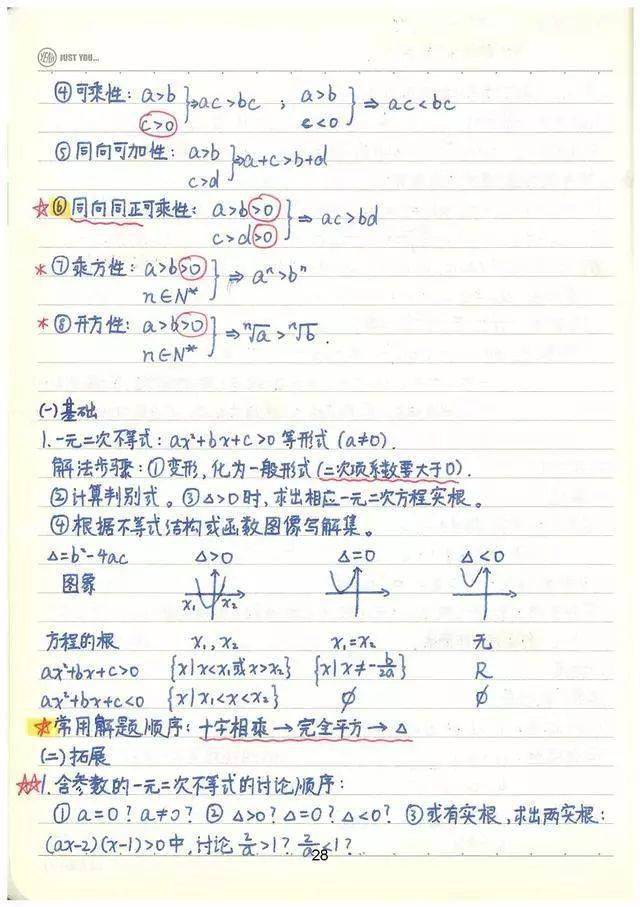 YEAH JUST YOU...
④可乘性: a>b c>0 }⇒ac>bc ; a>b c<0 }⇒ac<bc
⑤同向可加性: a>b c>d }⇒a+c>b+d
☆⑥同向同正可乘性: a>b>0 c>d>0 }⇒ac>bd
*⑦乘方性: a>b>0 n∈N* }⇒aⁿ>bⁿ
*⑧开方性: a>b>0 n∈N* }⇒ⁿ√a>ⁿ√b.
(一)基础
1.一元二次不等式: ax²+bx+c>0 等形式 (a≠0).
解法步骤:①变形,化为一般形式(二次项系数要大于0).
②计算判别式。③△>0时,求出相应一元二次方程实根。
④根据不等式结构或函数图像写解集。
△=b²-4ac △>0 △=0 △<0
图象 x₁ x₂
方程的根 x₁,x₂ x₁=x₂ 无
ax²+bx+c>0 {x|x<x₁或x>x₂} {x|x≠-b/2a} R
ax²+bx+c<0 {x|x₁<x<x₂} ∅ ∅
☆常用解题顺序:十字相乘→完全平方→△
(二)拓展
☆☆1.含参数的一元二次不等式的讨论顺序:
①a=0?a≠0? ②△>0?△=0?△<0? ③或有实根,求出两实根:
(ax-2)(x-1)>0中,讨论2/a>1?2/a<1?
28